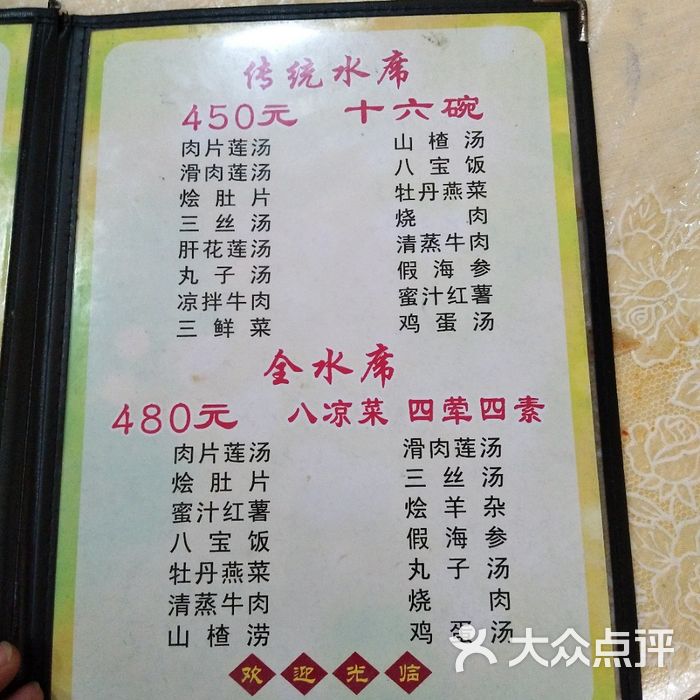 传统水席
450元 十六碗
肉片莲汤 山楂汤
滑肉莲汤 八宝饭
烩肚片 牡丹燕菜
三丝汤 烧肉
肝花莲汤 清蒸牛肉
丸子汤 假海参
凉拌牛肉 蜜汁红薯
三鲜菜 鸡蛋汤
全水席
480元 八凉菜 四荤四素
肉片莲汤 滑肉莲汤
烩肚片 三丝汤
蜜汁红薯 烩羊杂
八宝饭 假海参
牡丹燕菜 丸子汤
清蒸牛肉 烧肉
山楂涝 鸡蛋汤
欢迎光临
大众点评